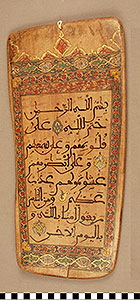 بسم الله الرحمن الرحيم
ختم الله على
قلوبهم وعلى سمعهم
وعلى أبصرهم
غشوة ولهم عذاب
عظيم ومن الناس
من يقول امنا بالله و
باليوم الاخر